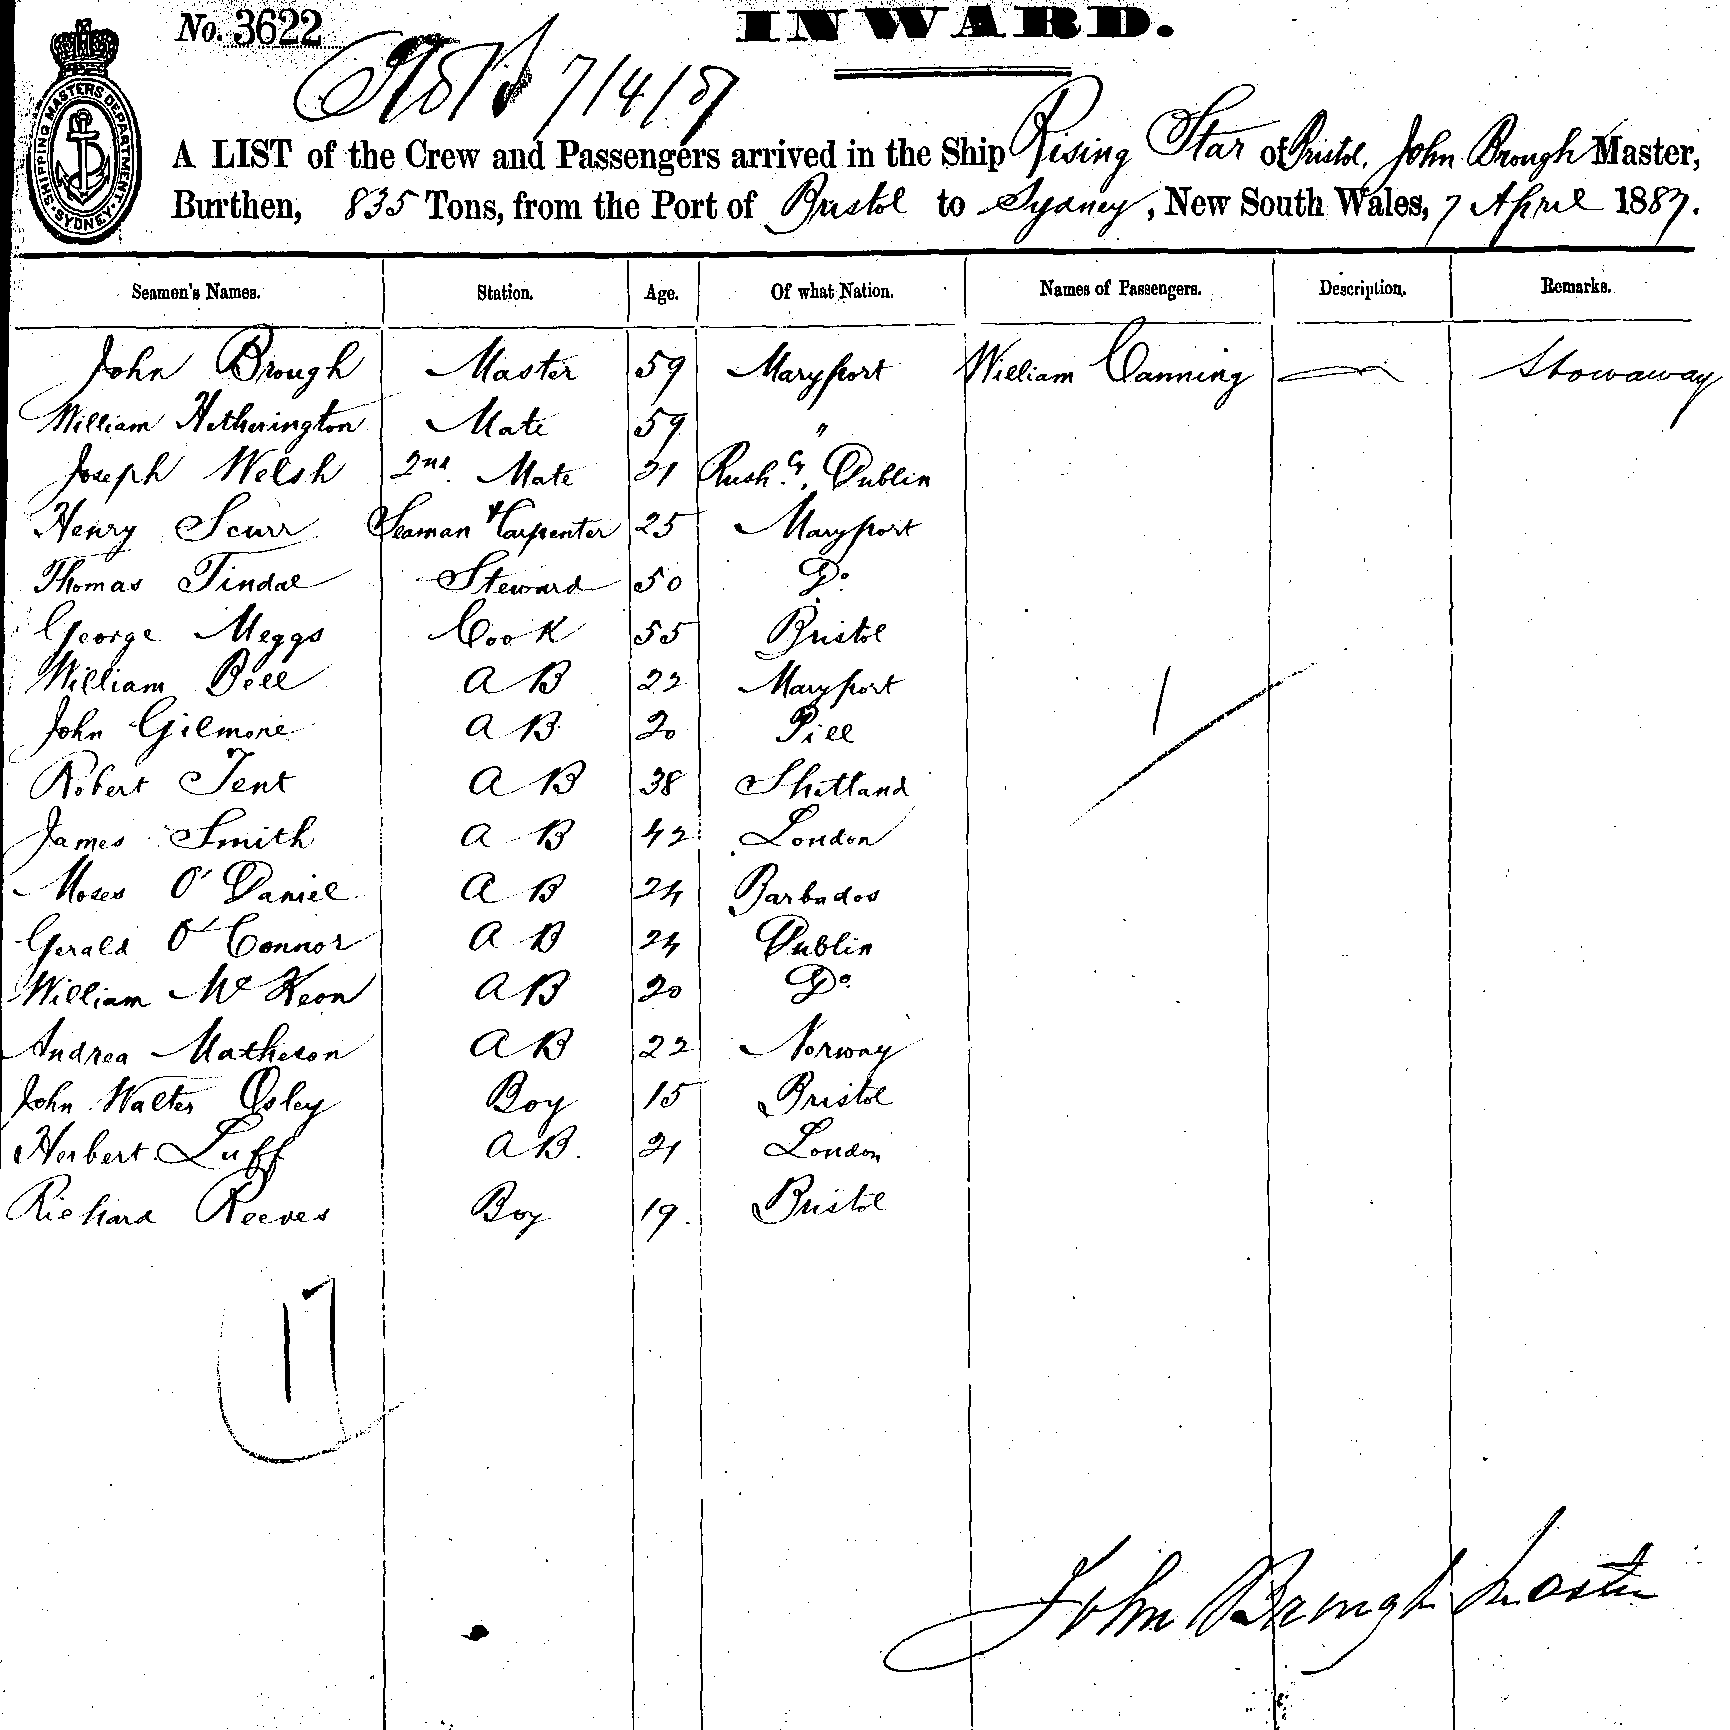 No. 3622
INWARD.
7/4/87
SHIPPING MASTERS DEPARTMENT SYDNEY
A LIST of the Crew and Passengers arrived in the Ship Rising Star of Bristol, John Brough Master,
Burthen, 835 Tons, from the Port of Bristol to Sydney, New South Wales, 7 April 1887.
Seamen's Names. Station. Age. Of what Nation. Names of Passengers. Description. Remarks.
John Brough Master 59 Maryport William Canning — Stowaway
William Hetherington Mate 59 "
Joseph Welsh 2nd Mate 21 Rush Cy. Dublin
Henry Scurr Seaman & Carpenter 25 Maryport
Thomas Tindal Steward 50 Do
George Meggs Cook 55 Bristol
William Bell A B 22 Maryport
John Gilmore A B 20 Pill
Robert Tent A B 38 Shetland
James Smith A B 42 London
Moses O'Daniel A B 24 Barbados
Gerald O'Connor A B 24 Dublin
William McKeon A B 20 Do
Andrea Matheson A B 22 Norway
John Walter Osley Boy 15 Bristol
Herbert Luff A B. 21 London
Richard Reeves Boy 19. Bristol
1
17
John Brough Master